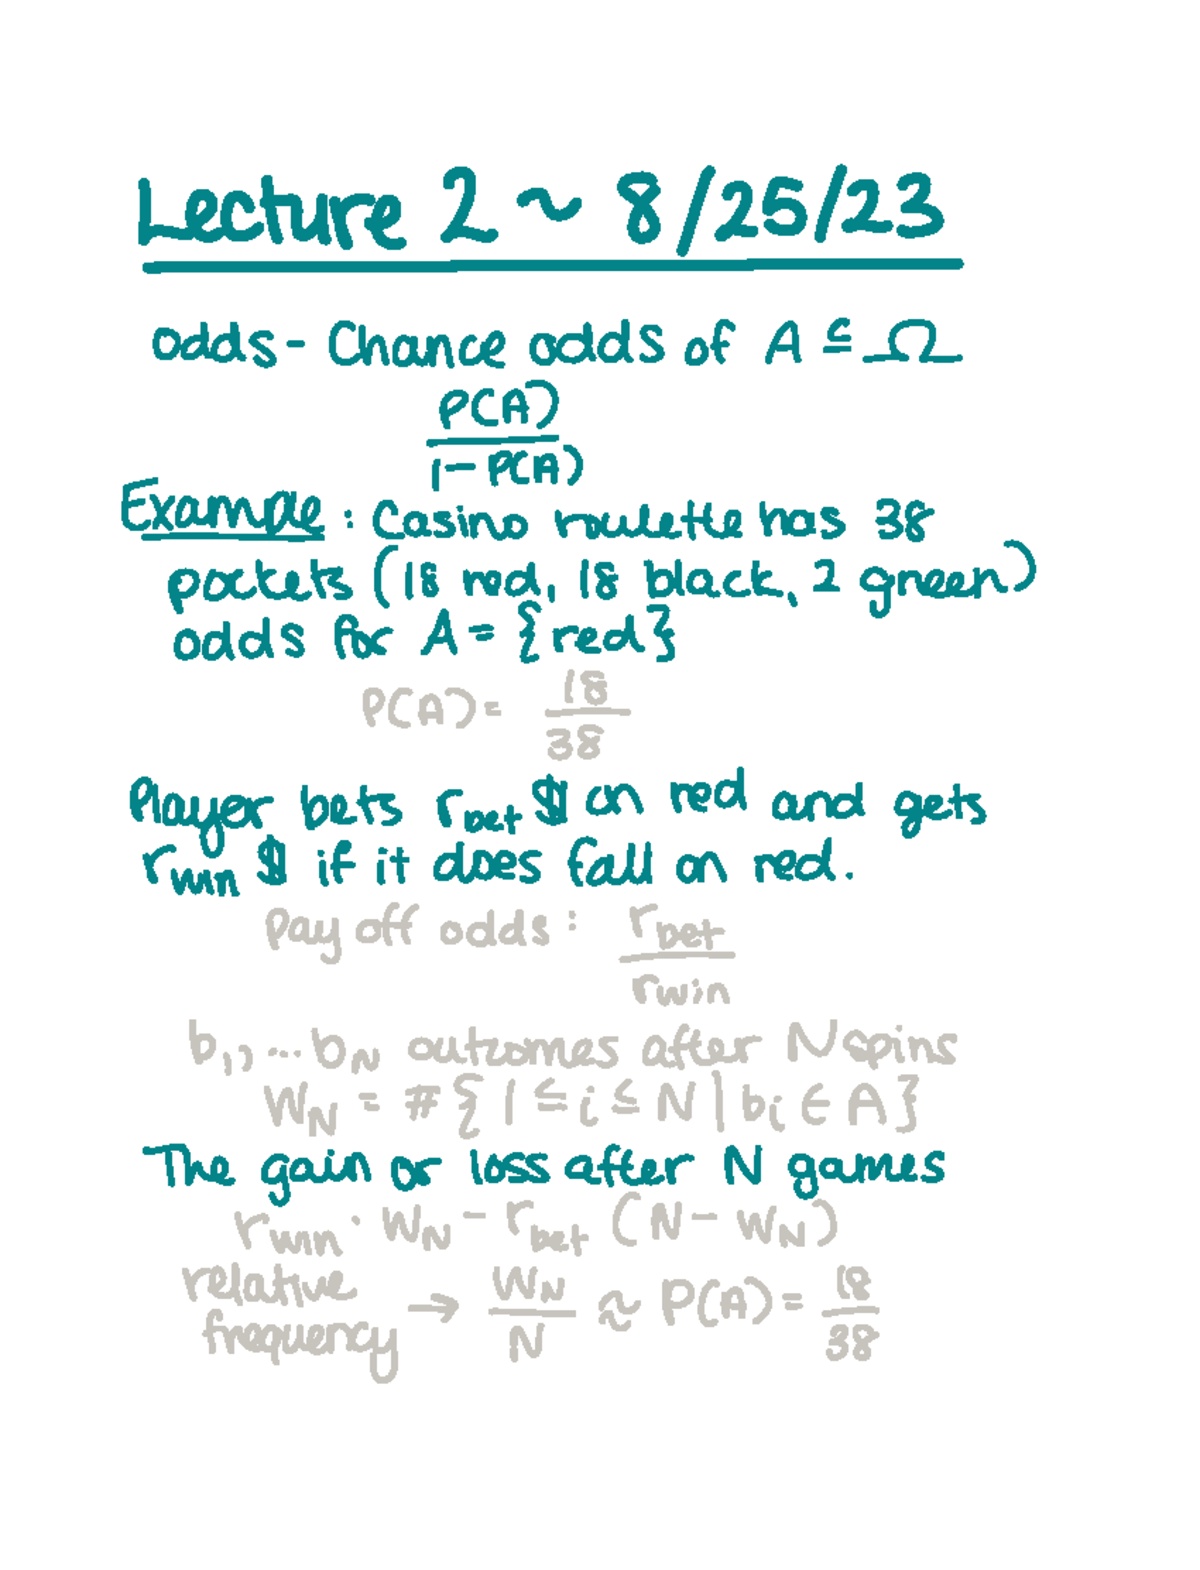 Lecture 2 ~ 8/25/23
odds - Chance odds of A ⊆ Ω
P(A)
1 - P(A)
Example: Casino roulette has 38
pockets (18 red, 18 black, 2 green)
odds for A = {red}
P(A) = 18/38
Player bets r_bet $ on red and gets
r_win $ if it does fall on red.
Pay off odds: r_bet/r_win
b₁, ... b_N outcomes after N spins
W_N = #{1 ≤ i ≤ N | b_i ∈ A}
The gain or loss after N games
r_win · W_N - r_bet (N - W_N)
relative
frequency → W_N/N ≈ P(A) = 18/38